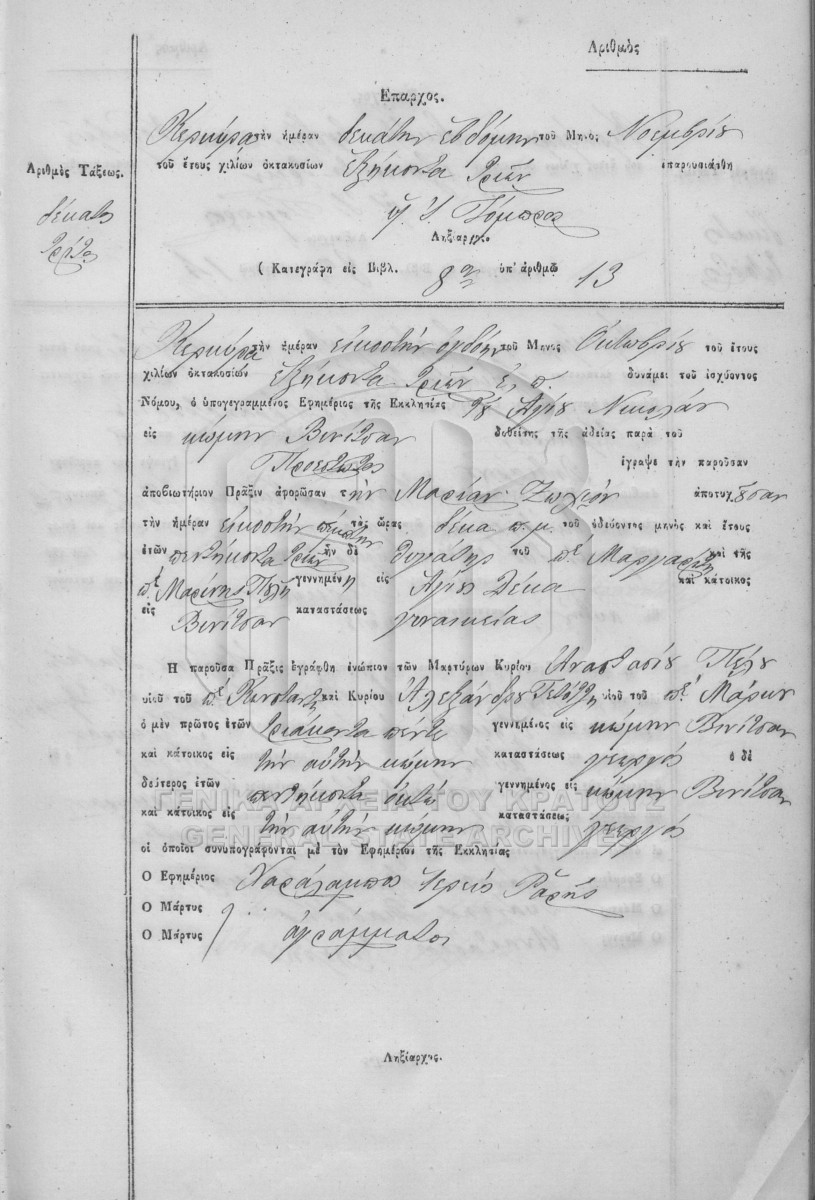 Αριθμὸς
Επαρχος.
Κερκύρα τὴν ἡμέραν δεκάτην ἑβδόμην τοῦ Μηνὸς Νοεμβρίου
τοῦ ἔτους χιλίων ὀκτακοσίων ἑξήκοντα τριῶν ἐπαρουσιάσθη
Αριθμὸς Τάξεως.
δέκατος
τρίτος
Ληξίαρχος.
( Κατεγράφη εἰς Βιβλ. 8ον ὑπ' ἀριθμὸ 13
Κερκύρα τὴν ἡμέραν εἰκοστὴν ὀγδόην τοῦ Μηνὸς Ὀκτωβρίου τοῦ ἔτους
χιλίων ὀκτακοσίων ἑξήκοντα τριῶν ἐ. π. δυνάμει τοῦ ἰσχύοντος
Νόμου, ὁ ὑπογεγραμμένος Εφημέριος τῆς Εκκλησίας τοῦ Ἁγίου Νικολάου
εἰς κώμην Βενίτσαν δοθείσης τῆς ἀδείας παρὰ τοῦ
Προεστῶτος ἔγραψε τὴν παροῦσαν
ἀποβιωτήριον Πρᾶξιν ἀφορῶσαν τὴν Μαρίαν ἀποτυχοῦσαν
τὴν ἡμέραν εἰκοστὴν πέμπτην τὰς ὥρας δέκα π. μ. τοῦ ὁδεύοντος μηνὸς καὶ ἔτους
ἐτῶν πεντήκοντα τριῶν ἦν δὲ θυγάτηρ τοῦ ποτὲ καὶ τῆς
ποτὲ γεννημένη εἰς Ἁγίους Δέκα καὶ κάτοικος
εἰς Βενίτσαν καταστάσεως γυναικείας
Η παροῦσα Πρᾶξις ἐγράφθη ἐνώπιον τῶν Μαρτύρων Κυρίου Ἀναστασίου Πέλου
υἱοῦ τοῦ ποτὲ Κωνσταντῆ καὶ Κυρίου Ἀλεξάνδρου υἱοῦ τοῦ ποτὲ Μάρκου
ὁ μὲν πρῶτος ἐτῶν τριάκοντα πέντε γεννημένος εἰς κώμην Βενίτσαν
καὶ κάτοικος εἰς τὴν αὐτὴν κώμην καταστάσεως γεωργός ὁ δὲ
δεύτερος ἐτῶν πεντήκοντα ὀκτὼ γεννημένος εἰς κώμην Βενίτσαν
καὶ κάτοικος εἰς τὴν αὐτὴν κώμην καταστάσεως γεωργός
οἱ ὁποῖοι συνυπογράφονται μὲ τὸν Εφημέριον τῆς Εκκλησίας
Ο Εφημέριος Χαράλαμπος ἱερεὺς
Ο Μάρτυς
Ο Μάρτυς ἀγράμματοι
Ληξίαρχος.
ΓΕΝΙΚΑ ΑΡΧΕΙΑ ΤΟΥ ΚΡΑΤΟΥΣ
GENERAL STATE ARCHIVES